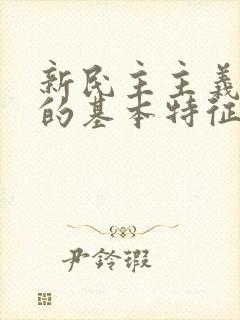 新民主主義
的基本特征
尹铃瑕